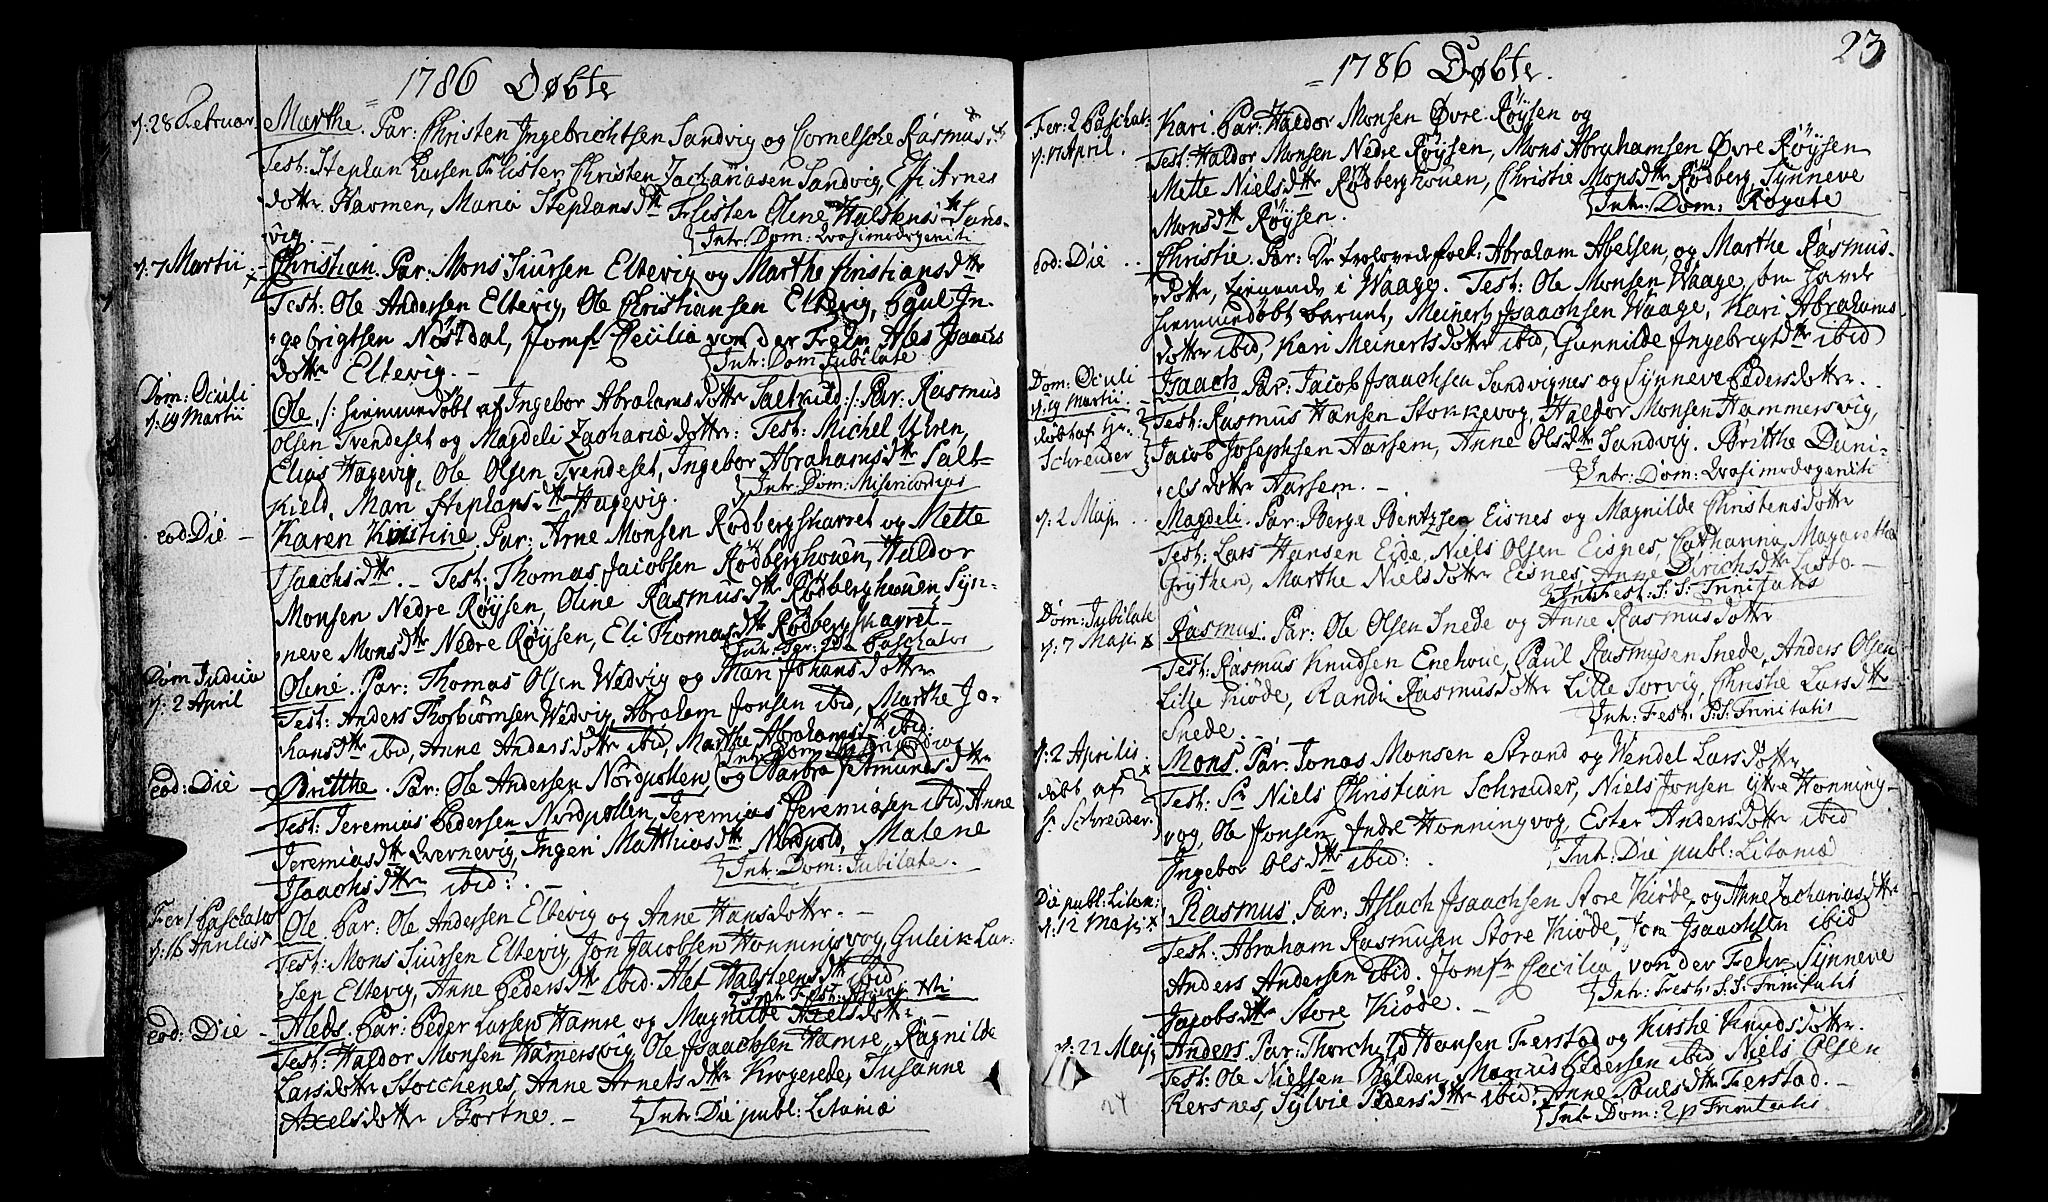 1786 Døbte
d: 28 Februar. Marthe. Par: Christen Ingebrichtsen Sandvig og Cornelsche Rasmusd:
Test: Stephan Larsen Flister Christen Zachariasen Sandvig, Eli Arnes
dotter Harmen, Maria Stephansdtr Flister Oline Halstensdtr Sand-
vig. Intr: Dom: Quasimodogeniti
d: 7 Martii Christian. Par: Mons Siursen Eltevig og Marthe Christiansdtr
Test: Ole Andersen Eltevig, Ole Christiansen Eltevig, Paul In-
gebrigtsen Nøstdal, Jomfr Cecilia von der Fehr, Ales Isaachs
dotter Eltevig. - Intr: Dom Jubilate
Dom: Oculi
d: 19 Martii
Ole, /: hiemmedøbt af Ingebor Abrahams dotter Saltkield :/ Par: Rasmus
Olsen Tvendeset og Magdeli Zachariæ dotter: Test: Michel Uren,
Elias Hagevig, Ole Olsen Tvendeset, Ingebor Abrahamsdtr Salt-
kield, Mari Stephansdtr Hagevig. Intr: Dom: Misericordias
eod: Die - Karen Kirstine. Par: Arne Monsen Rødbergskarret og Mette
Isaachsdtr. - Test: Thomas Jacobsen Rødberghouen, Haldor
Monsen Nedre Røysen, Oline Rasmusdtr Rødberghouen, Syn-
neve Monsdtr Nedre Røysen, Eli Thomasdtr Rødbergskarret-
Intr: Fer: 2da Paschatos
Dom Judica
d: 2 April
Oline. Par: Thomas Olsen Wedvig og Mari Johansdotter
Test: Anders Thorbiørnsen Wedvig, Abraham Jonsen ibid, Marthe Jo-
hansdtr ibid, Anne Andersdotter ibid, Marthe Abrahamsdtr ibid.
Intr: Dom: Misericordias
eod: Die - Britthe. Par: Ole Andersen Nordpollen og Barbra Jetmundsdtr
Test: Jeremias Pedersen Nordpollen, Jeremias Jeremiasen ibid, Anne
Jeremiasdtr Qvernevig, Ingeri Matthiasdtr Nordpold, Malene
Isaachsdtr ibid: . - Intr: Dom: Jubilate.
Fer 1 Paschatos
d: 16 Aprilis
Ole Par: Ole Andersen Eltevig og Anne Hansdotter. -
Test: Mons Siursen Eltevig, Jon Jacobsen Honningsvog, Guleik Lar-
sen Eltevig, Anne Pedersdtr ibid. Alet Halsteensdtr ibid
eod: Die - Aleds. Par: Peder Larsen Hamre og Magnilde Axelsdotter. -
Test: Haldor Monsen Hamersvig, Ole Isaachsen Hamre, Ragnilde
Larsdotter Stocchenes, Anne Arnetsdtr Krogerede, Susanne
Axelsdotter Bortne. - Intr: Die publ: Litaniæ
1786 Døbte. 23
Fer: 2 Paschat:
d: 17 April.
Kari. Par: Haldor Monsen Øvre Røysen og
Test: Haldor Monsen Nedre Røysen, Mons Abrahamsen Øvre Røysen
Mette Nielsdtr Rødberghouen, Christie Monsdtr Rødberg, Synneve
Monsdtr Røysen. Intr: Dom: Rogate
eod: Die .. Christie. Par: De trolovede folk: Abraham Abelsen, og Marthe Rasmus-
dotter, tienende i Waage. Test: Ole Monsen Waage, som havde
hiemmedøbt barnet, Meinert Isaachsen Waage, Kari Abrahams
dotter ibid, Kari Meinertsdotter ibid, Gunnilde Ingebrigtdtr ibid
Dom: Oculi
d: 19 Martii.
døbt af Hr.
Schreuder
Isaach. Par: Jacob Isaachsen Sandvignes og Synneve Pedersdotter. .
Test: Rasmus Hansen Stokkevog, Haldor Monsen Hammersvig,
Jacob Josephsen Aarsem, Anne Olsdtr Sandvig. Britthe Dani-
elsdotter Aarsem. - Intr: Dom: Quasimodogeniti
d: 2 Maji .. Magdeli. Par: Berge Bentzsen Eisnes og Magnilde Christensdotter
Test: Lars Hansen Eide, Niels Olsen Eisnes, Catharina Magaretha
Grythen, Marthe Nielsdotter Eisnes, Anne Dirichsdtr Listo. -
Intr: Fest: S: S: Trinitatis
Dom: Jubilate
d: 7 Maji
Rasmus. Par: Ole Olsen Snede og Anne Rasmusdotter
Test: Rasmus Knudsen Enehoue, Paul Rasmusen Snede, Anders Olsen
Lille Kiøde, Randi Rasmusdotter Lille Torvig, Christie Larsdtr
Snede. - Intr: Fest: S: S: Trinitatis
d: 2 Aprilis
døbt af
Hr Schreuder.
Mons. Par: Jonas Monsen Strand og Wendel Larsdotter
Test: Sr Niels Christian Schreuder, Niels Jonsen Ytre Honning-
vog, Ole Jonsen Indre Honningvog, Ester Andersdotter ibid
Ingebor Olsdtr ibid: . Intr: Die publ: Litaniæ
Die publ: Litan:
d: 12 Maji
Rasmus. Par: Aslach Isaachsen Store Kiøde, og Anne Zachariasdtr
Test: Abraham Rasmusen Store Kiøde, Jon Isaachsen ibid
Anders Andersen ibid. Jomfr Cecilia von der Fehr Synneve
Jacobsdtr Store Kiøde. Intr: Fest: S: S: Trinitatis
d: 22 Maji Anders. Par: Thorchild Hansen Ferstad og Kirstie Knudsdotter.
Test: Ole Nielsen Belden, Marius Pedersen ibid Niels Olsen
Rersnes, Sylvie Pedersdtr ibid: Anne Paulsdtr Ferstad. -
Intr: Dom: 2 p Trinitatis
24